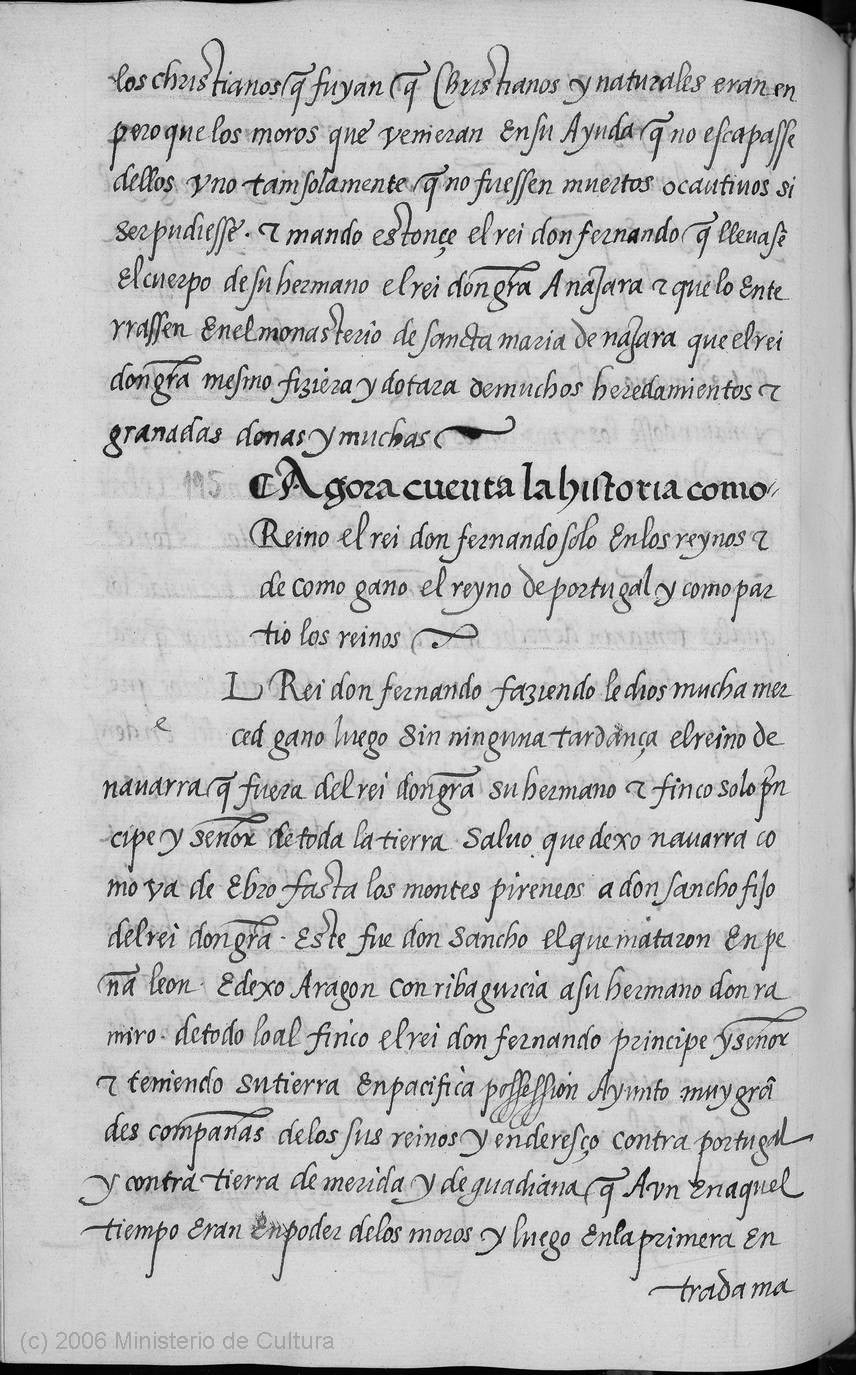 los christianos q̃ fuyan q̃ Christianos y naturales eran en
pero que los moros que venieran En su Ayuda q̃ no escapasse
dellos vno tam solamente q̃ no fuessen muertos o cautiuos si
ser pudiesse. ⁊ mando estonçe el rei don fernando q̃ lleuasẽ
El cuerpo de su hermano el rei don gr̃a A najara ⁊ que lo Ente
rrassen En el monasterio de sancta maria de najara que el rei
don gr̃a mesmo fiziera y dotara de muchos heredamientos ⁊
granadas donas y muchas
195 ¶ Agora cuenta la historia como
Reino el rei don fernando solo En los reynos ⁊
de como gano el reyno de portugal y como par
tio los reinos
L Rei don fernando faziendo le dios mucha mer
e ced gano luego Sin ninguna tardança el reino de
nauarra q̃ fuera del rei don gr̃a su hermano ⁊ finco solo pn̄
cipe y señor de toda la tierra Saluo que dexo nauarra co
mo va de Ebro fasta los montes pireneos a don sancho fijo
del rei don gr̃a. Este fue don Sancho el que mataron En pe
ña leon. E dexo Aragon con ribagurcia a su hermano don ra
miro. de todo lo al finco el rei don fernando principe y señor
⁊ teniendo su tierra En pacifica possession Ayunto muy grã
des compañas de los sus reinos y enderesço contra portugal
y contra tierra de merida y de guadiana q̃ Avn En aquel
tiempo Eran En poder de los moros y luego En la primera En
trada ma
(c) 2006 Ministerio de Cultura